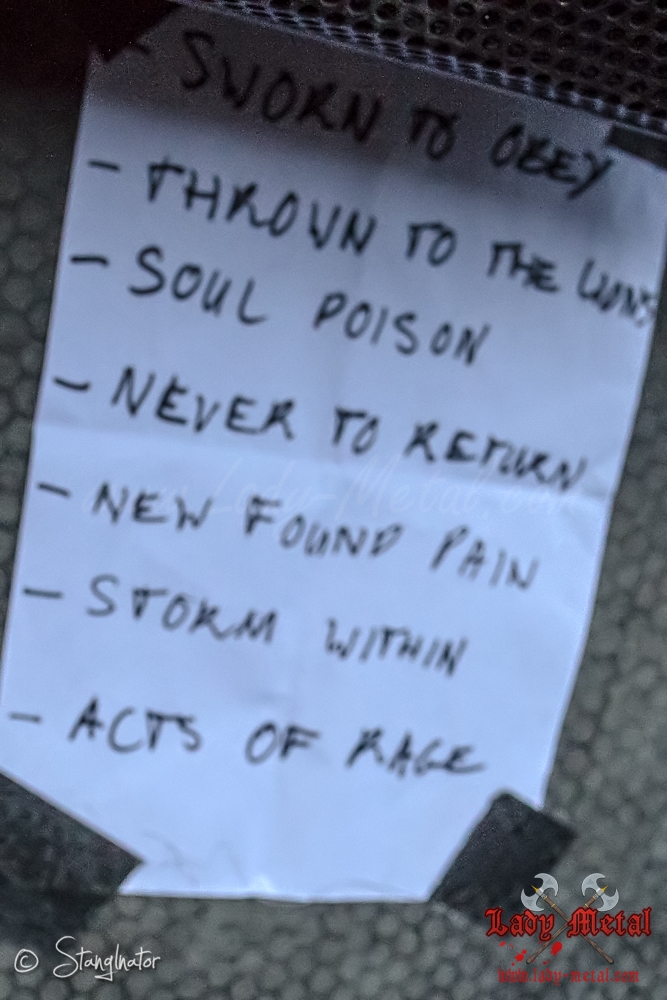 - SWORN TO OBEY
- THROWN TO THE LIONS
- SOUL POISON
- NEVER TO RETURN
- NEW FOUND PAIN
- STORM WITHIN
- ACTS OF RAGE
www.Lady-Metal.com
Lady Metal
www.lady-metal.com
© Stanglnator